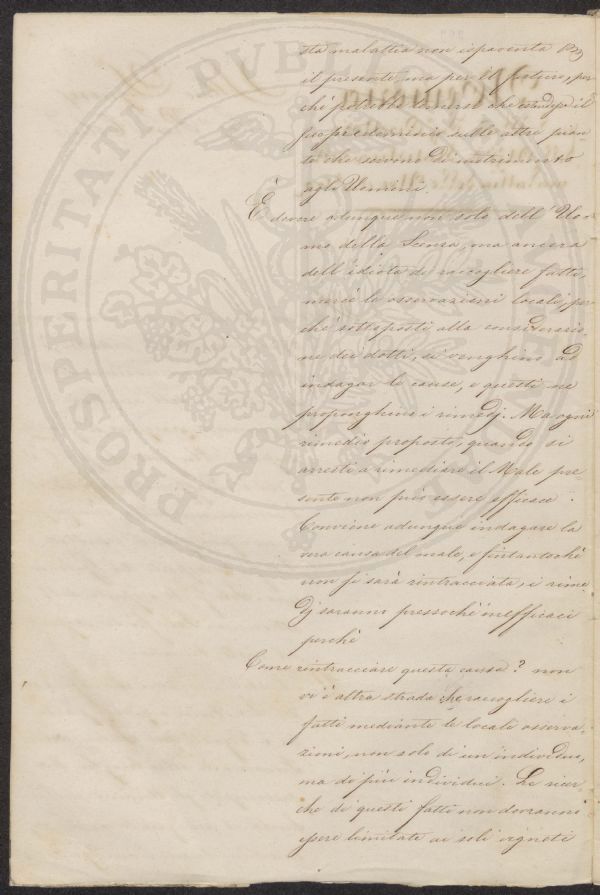 sta malattia non ispaventa per
il presente, ma per il futuro, per
chè potrebbe temersi che estenda il
suo predominio sulle altre pian
te che servono di nutrimento
agli Uomini.
È dovere adunque non solo dell' Uo
mo della Scienza, ma ancora
dell' idiota di raccogliere fatti
mercè le osservazioni locali, per
chè sottoposti alla considerazio
ne dei dotti, si venghino ad
indagar le cause, e questi ne
proponghino i rimedj. Ma ogni
rimedio proposto, quando si
arresti a rimediare il Male pre
sente non può essere efficace.
Conviene adunque indagare la
vera causa del male, e fintantochè
non si sarà rintracciata, i rime
dj saranno pressochè inefficaci
perchè
Come rintracciare questa causa? non
vi è altra strada che raccogliere i
fatti mediante le locali osserva
zioni, non solo di un' individuo,
ma di più individui. Le ricer
che di questi fatti non dovranno
essere limitate ai soli vigneti
PROSPERITATI PVBLICAE